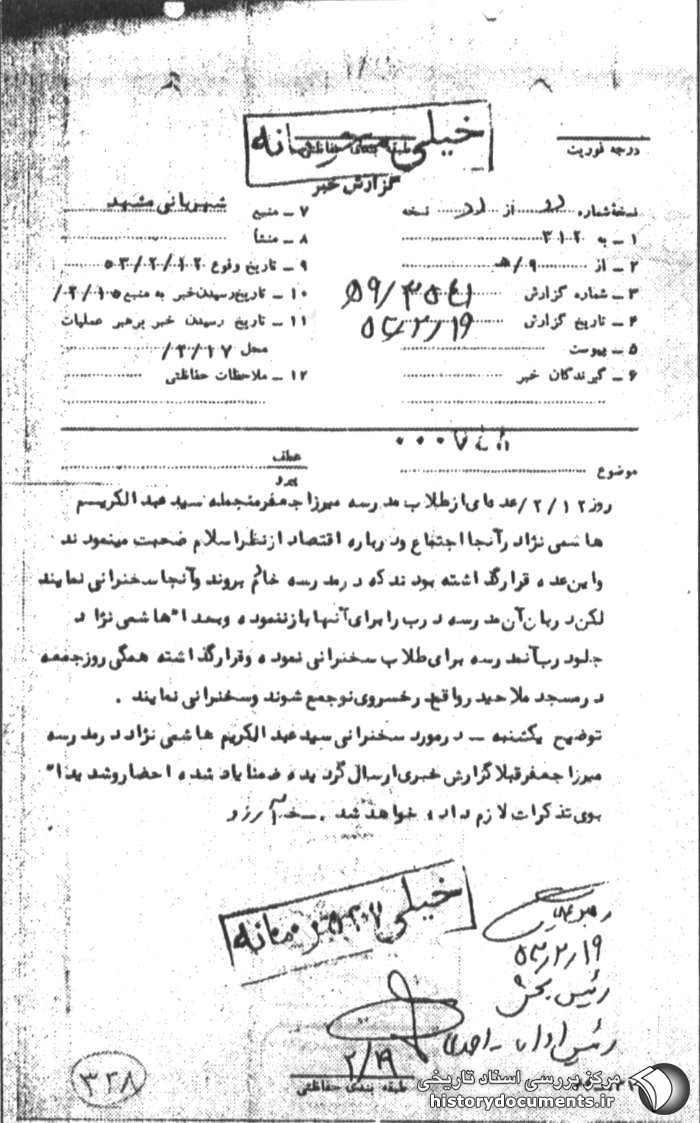 خیلی محرمانه
طبقه بندی حفاظتی
درجه فوریت
گزارش خبر
نسخهٔ شماره از نسخه
۱ ـ به ۳۱۲
۲ ـ از ۹/هـ
۳ ـ شماره گزارش
۴ ـ تاریخ گزارش ۵۳/۲/۱۹
۵ ـ پیوست
۶ ـ گیرندگان خبر
۷ ـ منبع شهربانی مشهد
۸ ـ منشأ
۹ ـ تاریخ وقوع ۵۳/۲/۱۲
۱۰ ـ تاریخ رسیدن خبر به منبع ۲/۱۵/
۱۱ ـ تاریخ رسیدن خبر برهبر عملیات
محل ۲/۱۷/
۱۲ ـ ملاحظات حفاظتی
موضوع
عطف
پیرو
روز ۲/۱۲/ عده‌ای از طلاب مدرسه میرزا جعفر منجمله سید عبدالکریم
هاشمی نژاد رآنجا اجتماع ود رباره اقتصاد از نظر اسلام صحبت مینمودند
واین عده قرار گذاشته بودند که در مدرسه خانم بروند وآنجا سخنرانی نمایند
لکن دربان آن مدرسه درب را برای آنها باز ننموده وبعدا" هاشمی نژاد
جلود رب آنمدرسه برای طلاب سخنرانی نموده وقرار گذاشته همگی روز جمعه
در مسجد ملاحید رواقع در خسروی نو جمع شوند وسخنرانی نمایند .
توضیح یکشنبه ـ در مورد سخنرانی سید عبدالکریم هاشمی نژاد در مدرسه
میرزا جعفر قبلا گزارش خبری ارسال گردیده ضمنا یاد شده احضار وشدیدا"
بوی تذکرات لازم داده خواهد شد .
خیلی محرمانه
رهبر عملیات
۵۳/۲/۱۹
رئیس بخش
رئیس اداره
۲/۱۹
طبقه بندی حفاظتی
۳۳۸
مرکز بررسی اسناد تاریخی
historydocuments.ir